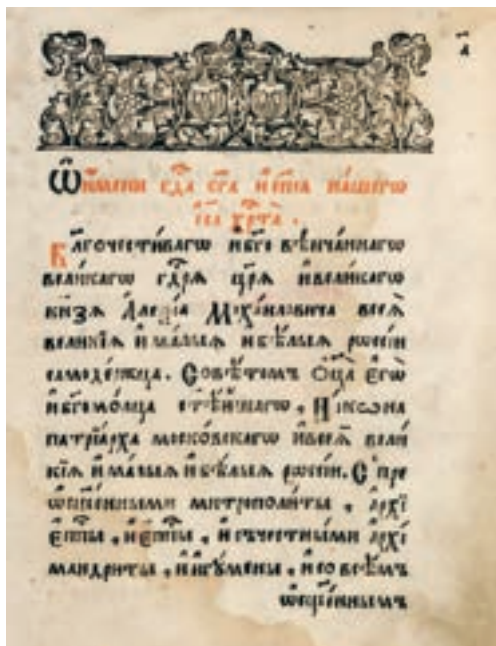 Ѡ҆ имени гдⷭ҇а бг҃а и҆ сп҃са на́шегѡ
і҆са хрⷭ҇та̀.
Бл҃гочести́вагѡ и҆ бг҃овѣнча́ннагѡ
вели́кагѡ гдⷭ҇рѧ цр҃ѧ̀ и҆ вели́кагѡ
кн҃зѧ А҆леѯі́а Миха́иловича всеѧ̀
вели́кїѧ и҆ ма́лыѧ и҆ бѣ́лыѧ рѡсі́и
самоде́ржца. Совѣ́томъ Ѻ҆ц҃а̀ є҆гѡ̀
и҆ бг҃омо́лца ст҃ѣ́йшагѡ, Ни́кѡна
патрїа́рха моско́вскагѡ и҆ всеѧ̀ вели́
кїѧ и҆ ма́лыѧ и҆ бѣ́лыѧ рѡсі́и. С̾ пре
ѡ҆сщ҃е́нными митрополи́ты, а҆рхї
є҆пⷭ҇пы, и҆ є҆пⷭ҇пы, и҆ съ честны́ми а҆рхї
мандри́ты, и҆ и҆гꙋ́мены, и҆ со всѣ́мъ
ѡ҆сщ҃е́ннымъ